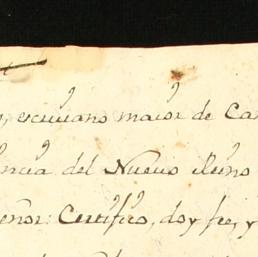 escriuano maior de Ca
incia del Nueuo Reino
eñor: Certifico, doy fee, y